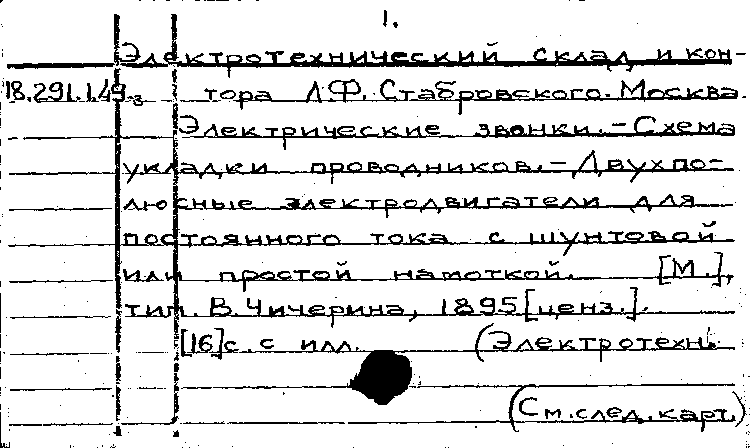 1.
Электротехнический склад и кон-
18.291.1.49з тора Л.Ф. Стабровского. Москва.
Электрические звонки.-Схема
укладки проводников.-Двухпо-
люсные электродвигатели для
постоянного тока с шунтовой
или простой намоткой. [М.],
тип. В. Чичерина, 1895[ценз.].
[16]с. с илл. (Электротехн.
(См. след. карт.)